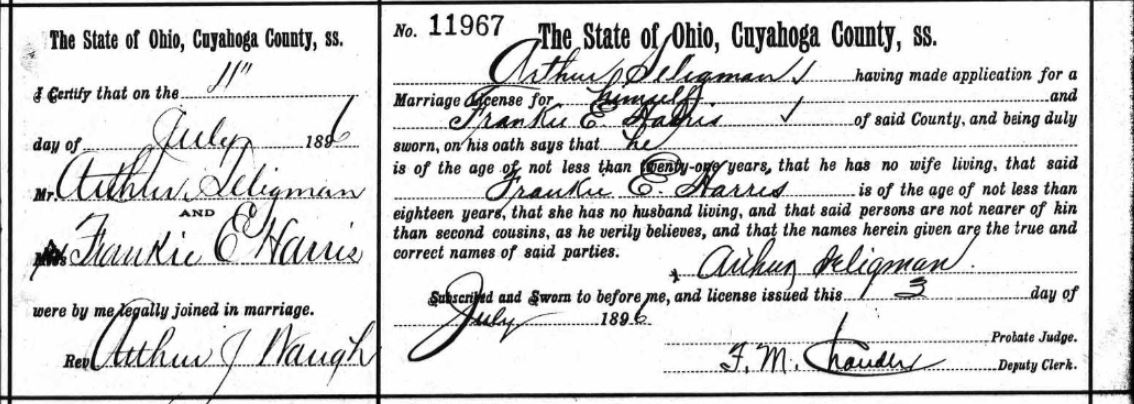 The State of Ohio, Cuyahoga County, ss.
I Certify that on the 11"
day of July 1896
Mr. Arthur Seligman
AND
Frankie E Harris
were by me legally joined in marriage.
Rev Arthur J Waugh
No. 11967 The State of Ohio, Cuyahoga County, ss.
Arthur Seligman having made application for a
Marriage License for himself and
Frankie E Harris of said County, and being duly
sworn, on his oath says that he
is of the age of not less than twenty-one years, that he has no wife living, that said
Frankie E. Harris is of the age of not less than
eighteen years, that she has no husband living, and that said persons are not nearer of kin
than second cousins, as he verily believes, and that the names herein given are the true and
correct names of said parties.
Arthur Seligman.
Subscribed and Sworn to before me, and license issued this 3 day of
July 1896
Probate Judge.
F. M. Deputy Clerk.